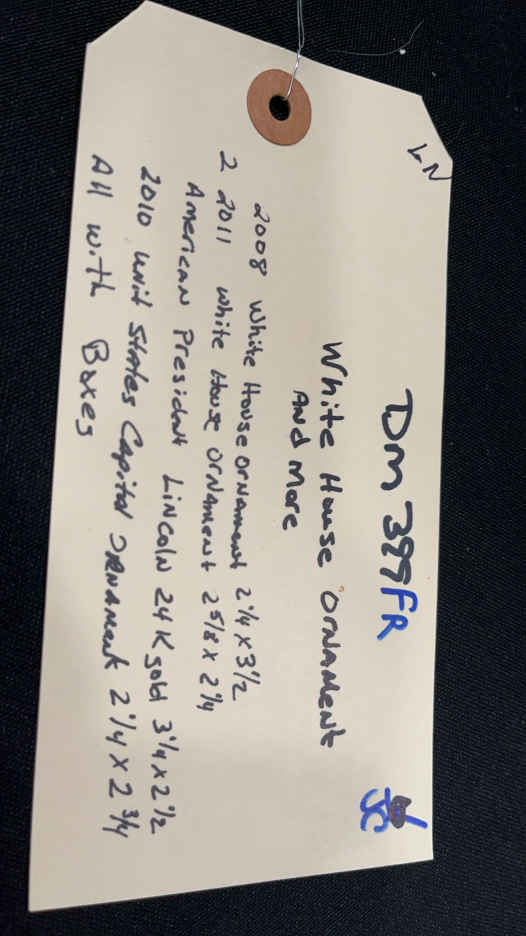 LN
Dm 399FR
JC
White House ornament
And more
2008 White House ornament 2 1/4 x 3 1/2
2 2011 White House ornament 2 5/8 x 2 1/4
American President Lincoln 24K gold 3 1/4 x 2 1/2
2010 unit States Capital ornament 2 1/4 x 2 3/4
All with Boxes